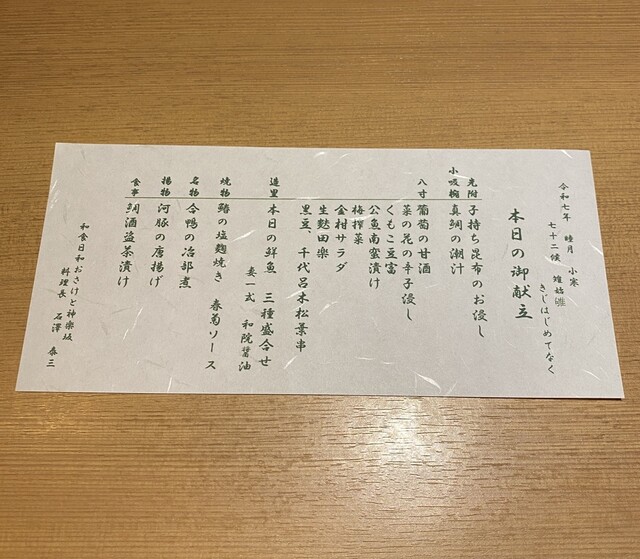 令和七年 睦月 小寒
七十二候 雉始雊
きじはじめてなく
本日の御献立
先附 子持ち昆布のお浸し
小吸椀 真鯛の潮汁
八寸 葡萄の甘酒
菜の花の辛子浸し
くもこ豆富
公魚南蛮漬け
梅搾菜
金村サラダ
生麩田楽
黒豆、千代呂木松葉串
造里 本日の鮮魚 三種盛合せ
妻一式 和院醤油
焼物 鰆の塩麹焼き 春菊ソース
名物 合鴨の冶部煮
揚物 河豚の唐揚げ
食事 鯛酒盗茶漬け
和食日和おさけと神楽坂
料理長 石澤 泰三